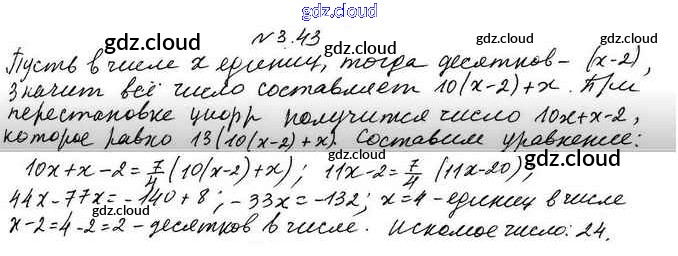 gdz.cloud
№3.43
gdz.cloud gdz.cloud
Пусть в числе x единиц, тогда десятков - (x-2),
значит всё число составляет 10(x-2)+x. При
gdz.cloud gdz.cloud
перестановке цифр получится число 10x+x-2,
которое равно 13(10(x-2)+x). Составим уравнение:
gdz.cloud gdz.cloud
10x+x-2=7/4(10(x-2)+x); 11x-2=7/4(11x-20);
gdz.cloud
44x-77x=-140+8; -33x=-132; x=4 - единиц в числе
gdz.cloud gdz.cloud
x-2=4-2=2 - десятков в числе. Искомое число: 24.
gdz.cloud